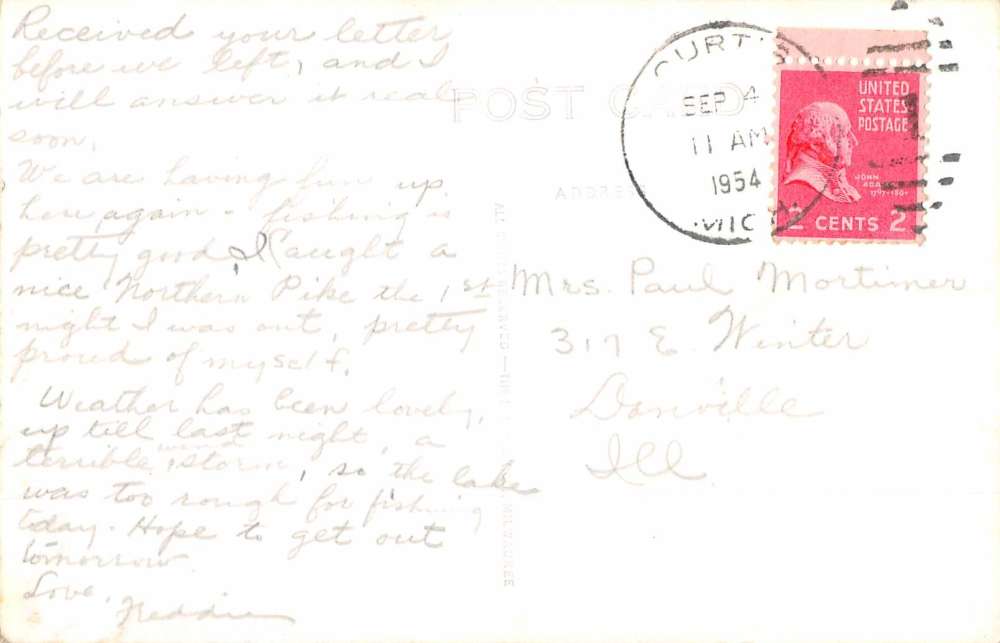 Received your letter
before we left, and I
will answer it real
soon.
We are having fun up
here again - fishing is
pretty good, I Caught a
nice Northern Pike the 1st
night I was out, pretty
proud of myself.
Weather has been lovely,
up till last night, a
terrible wind storm, so the lake
was too rough for fishing
today. Hope to get out
tomorrow.
Love,
Freddie
POST CARD
ADDRESS
CURTIS
SEP 4
11 AM
1954
MICH.
UNITED
STATES
POSTAGE
JOHN
ADAMS
2 CENTS 2
Mrs. Paul Mortimer
317 E. Winter
Danville
Ill